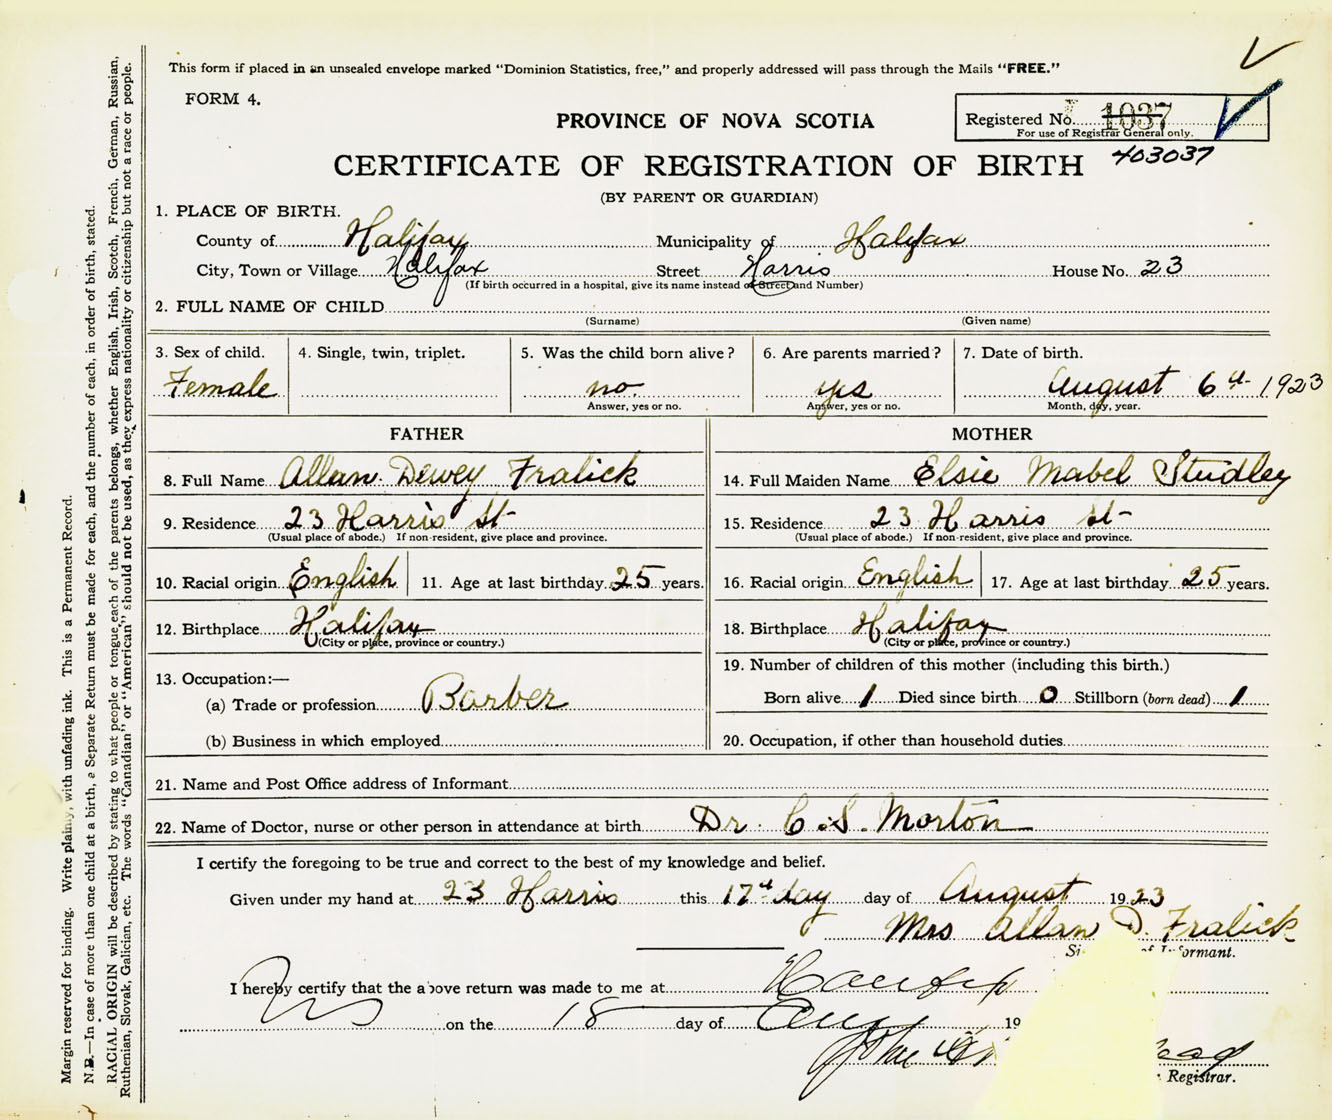 This form if placed in an unsealed envelope marked "Dominion Statistics, free," and properly addressed will pass through the Mails "FREE."
FORM 4.
PROVINCE OF NOVA SCOTIA
Registered No. 1037
For use of Registrar General only.
403037
CERTIFICATE OF REGISTRATION OF BIRTH
(BY PARENT OR GUARDIAN)
1. PLACE OF BIRTH.
County of Halifax Municipality of Halifax
City, Town or Village Halifax Street Harris House No. 23
(If birth occurred in a hospital, give its name instead of Street and Number)
2. FULL NAME OF CHILD
(Surname) (Given name)
3. Sex of child. 4. Single, twin, triplet. 5. Was the child born alive? 6. Are parents married? 7. Date of birth.
Female no. yes August 6th 1923
Answer, yes or no. Answer, yes or no. Month, day, year.
FATHER MOTHER
8. Full Name Allan Dewey Fralick 14. Full Maiden Name Elsie Mabel Studley
9. Residence 23 Harris St 15. Residence 23 Harris St
(Usual place of abode.) If non-resident, give place and province. (Usual place of abode.) If non-resident, give place and province.
10. Racial origin English 11. Age at last birthday 25 years. 16. Racial origin English 17. Age at last birthday 25 years.
12. Birthplace Halifax 18. Birthplace Halifax
(City or place, province or country.) (City or place, province or country.)
13. Occupation:— 19. Number of children of this mother (including this birth.)
(a) Trade or profession Barber Born alive 1 Died since birth 0 Stillborn (born dead) 1
(b) Business in which employed 20. Occupation, if other than household duties
21. Name and Post Office address of Informant
22. Name of Doctor, nurse or other person in attendance at birth Dr. C. S. Morton
I certify the foregoing to be true and correct to the best of my knowledge and belief.
Given under my hand at 23 Harris this 17th day day of August 1923
Mrs Allan D. Fralick
of Informant.
I hereby certify that the above return was made to me at
on the 18 day of Aug 19
John
Registrar.
Margin reserved for binding. Write plainly, with unfading ink. This is a Permanent Record.
N.B.—In case of more than one child at a birth, a Separate Return must be made for each, and the number of each, in order of birth, stated.
RACIAL ORIGIN will be described by stating to what people or tongue each of the parents belongs, whether English, Irish, Scotch, French, German, Russian,
Ruthenian, Slovak, Galician, etc. The words "Canadian" or "American" should not be used, as they express nationality or citizenship but not a race or people.